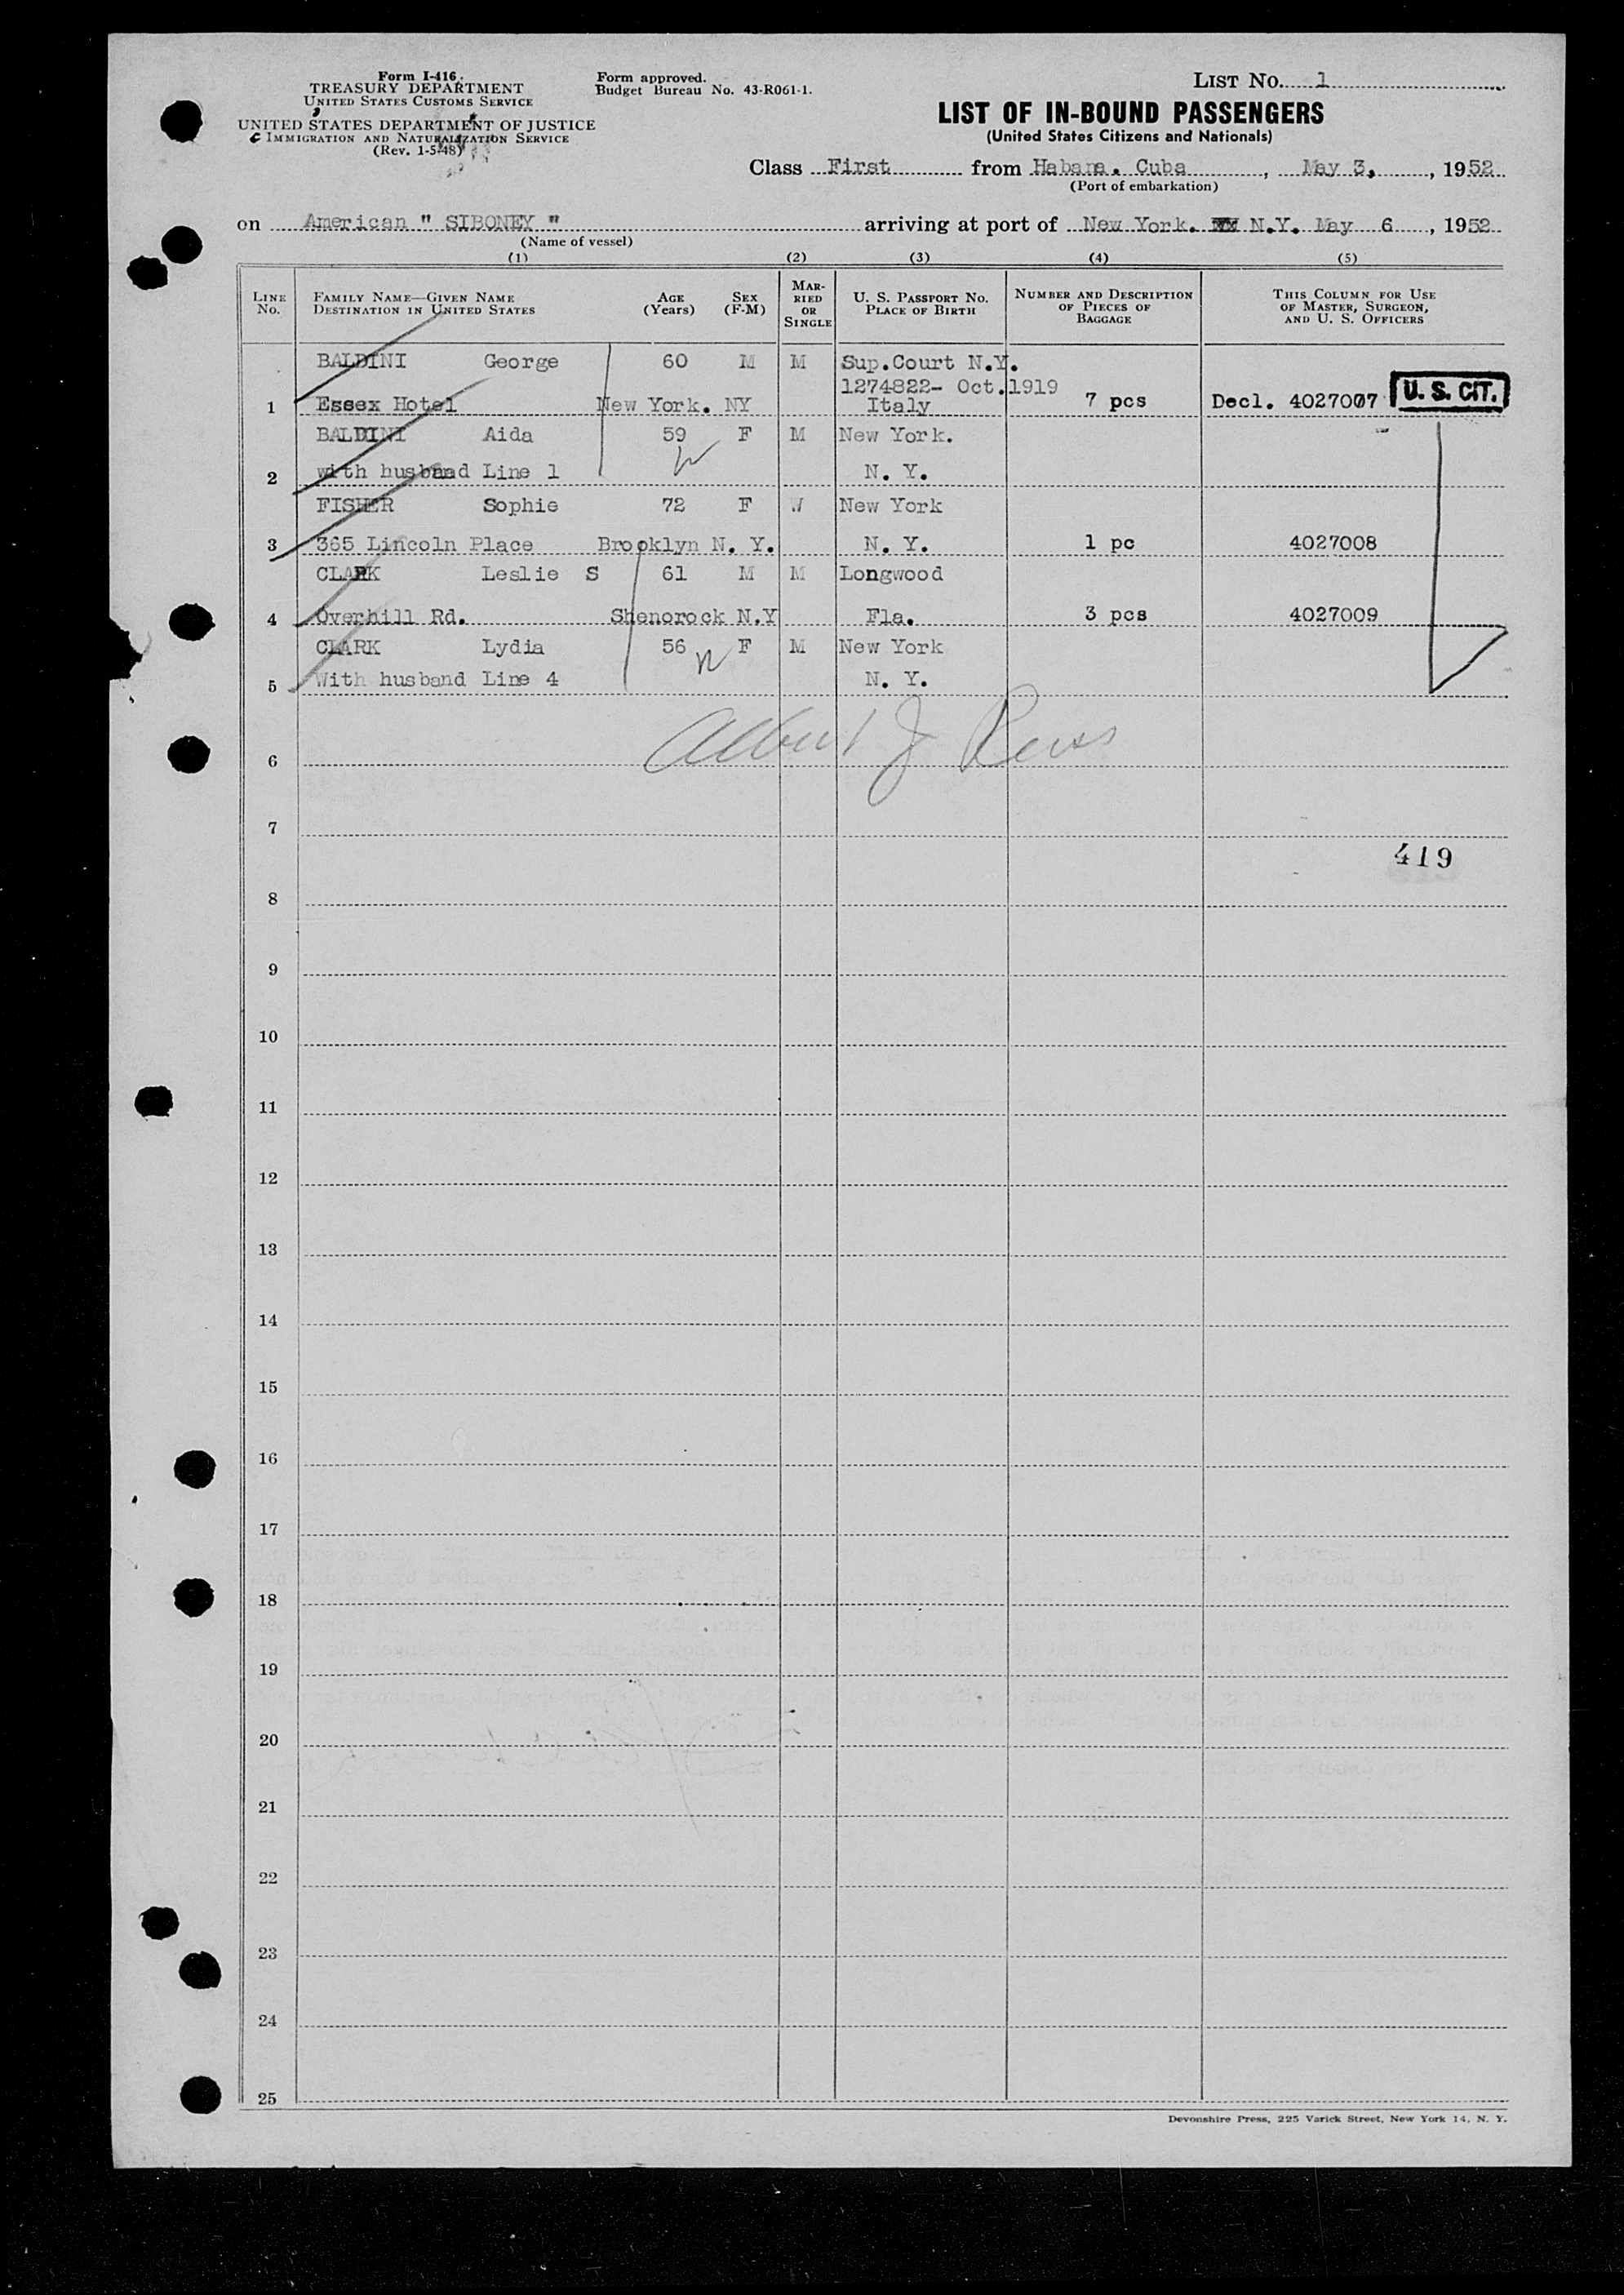 Form I-416.
TREASURY DEPARTMENT
UNITED STATES CUSTOMS SERVICE
UNITED STATES DEPARTMENT OF JUSTICE
IMMIGRATION AND NATURALIZATION SERVICE
(Rev. 1-5-48)
Form approved.
Budget Bureau No. 43-R061-1.
LIST No. 1
LIST OF IN-BOUND PASSENGERS
(United States Citizens and Nationals)
Class First from Habana. Cuba, May 3, 1952
(Port of embarkation)
on American " SIBONEY " arriving at port of New York. N.Y. May 6, 1952
(Name of vessel)
(1) (2) (3) (4) (5)
LINE No. FAMILY NAME—GIVEN NAME DESTINATION IN UNITED STATES AGE (Years) SEX (F-M) MARRIED OR SINGLE U. S. PASSPORT NO. PLACE OF BIRTH NUMBER AND DESCRIPTION OF PIECES OF BAGGAGE THIS COLUMN FOR USE OF MASTER, SURGEON, AND U. S. OFFICERS
BALDINI George 60 M M Sup.Court N.Y.
1274822- Oct.1919
1 Essex Hotel New York. NY Italy 7 pcs Decl. 4027007 U. S. CIT.
BALDINI Aida 59 F M New York.
2 with husband Line 1 N. Y.
FISHER Sophie 72 F W New York
3 365 Lincoln Place Brooklyn N. Y. N. Y. 1 pc 4027008
CLARK Leslie S 61 M M Longwood
4 Overhill Rd. Shenorock N.Y Fla. 3 pcs 4027009
CLARK Lydia 56 F M New York
5 With husband Line 4 N. Y.
Albert J Reiss
6
7
419
8
9
10
11
12
13
14
15
16
17
18
19
20
21
22
23
24
25
Devonshire Press, 225 Varick Street, New York 14, N. Y.